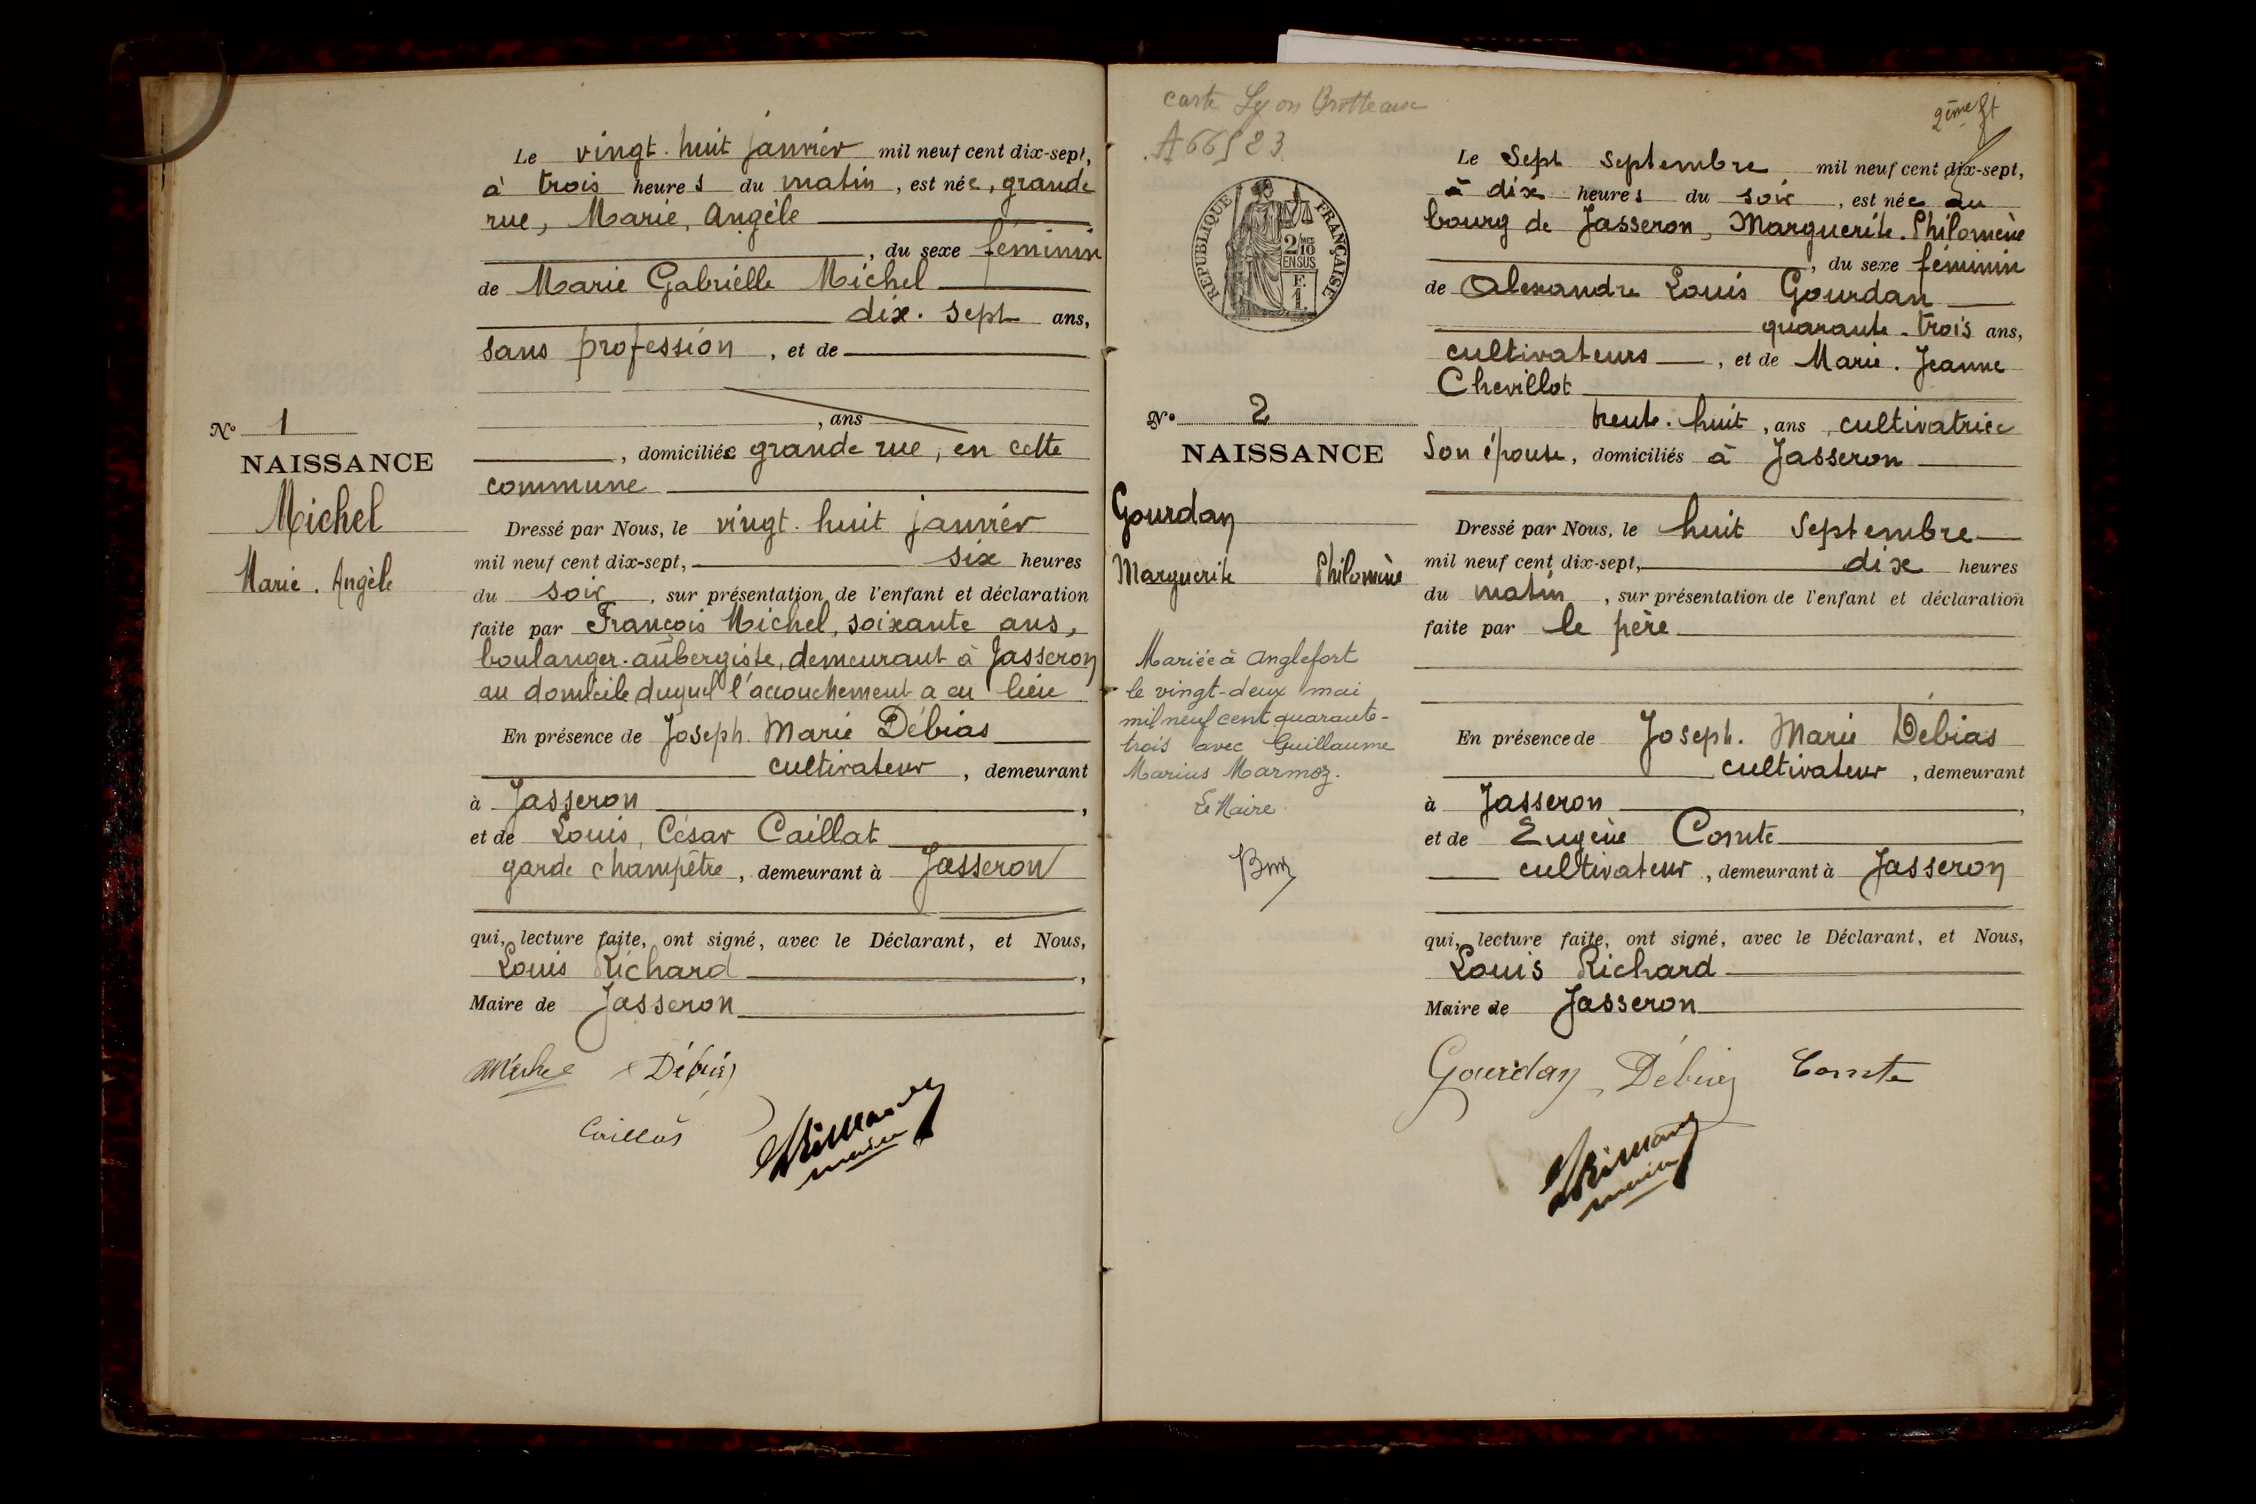 Le vingt-huit janvier mil neuf cent dix-sept,
à trois heures du matin, est née, grande
rue, Marie, Angèle
, du sexe féminin
de Marie Gabrielle Michel
dix-sept ans,
sans profession, et de
, ans
, domiciliée grande rue, en cette
commune
N° 1
NAISSANCE
Michel
Marie. Angèle
Dressé par Nous, le vingt-huit janvier
mil neuf cent dix-sept, six heures
du soir, sur présentation de l'enfant et déclaration
faite par François Michel, soixante ans,
boulanger-aubergiste, demeurant à Jasseron
au domicile duquel l'accouchement a eu lieu
En présence de Joseph. Marie Débias
cultivateur, demeurant
à Jasseron,
et de Louis, César Caillat
garde champêtre, demeurant à Jasseron
qui, lecture faite, ont signé, avec le Déclarant, et Nous,
Louis Richard,
Maire de Jasseron
Michel Débias
maire
carte Lyon Brotteaux
2ème ft
RÉPUBLIQUE FRANÇAISE
2/10
EN SUS
N° 2
NAISSANCE
Gourdan
Marguerite Philomène
Mariée à Anglefort
le vingt-deux mai
mil neuf cent quarante-
trois avec Guillaume
Marius Marmoz.
Le Maire
Le sept septembre mil neuf cent dix-sept,
à dix heures du soir, est née au
bourg de Jasseron, Marguerite. Philomène
, du sexe féminin
de Alexandre Louis Gourdan
quarante-trois ans,
cultivateurs, et de Marie. Jeanne
Chevillot
trente-huit, ans, cultivatrice
Son épouse, domiciliés à Jasseron
Dressé par Nous, le huit septembre
mil neuf cent dix-sept, dix heures
du matin, sur présentation de l'enfant et déclaration
faite par le père
En présence de Joseph. Marie Débias
cultivateur, demeurant
à Jasseron,
et de Eugène Comte
cultivateur, demeurant à Jasseron
qui, lecture faite, ont signé, avec le Déclarant, et Nous,
Louis Richard
Maire de Jasseron
Gourdan Débias Comte
maire